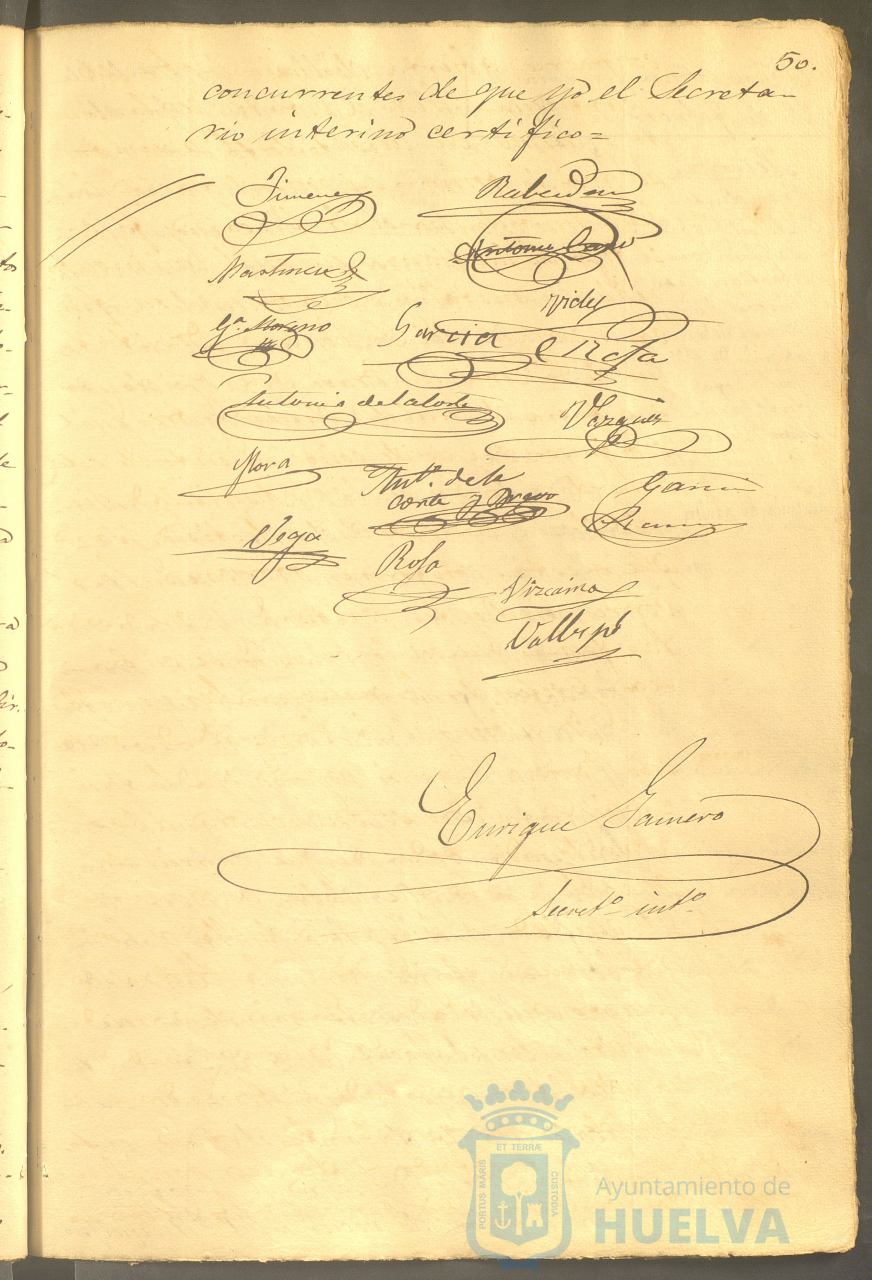 50.
concurrentes de que yo el Secreta-
rio interino certifico=
Jimenez
Antonio Cano
Martinez
Vides
Gª. Moreno
Garcia
Rofa
Antonio de la Corte
Vazquez
Mora
Antº. de la
Corte y Bravo
Garcia
Ramos
Vega
Rosa
Vizcaino
Vallespí
Enrique Gamero
Secretº intº
ET TERRÆ
PORTUS MARIS
CUSTODIA
Ayuntamiento de
HUELVA